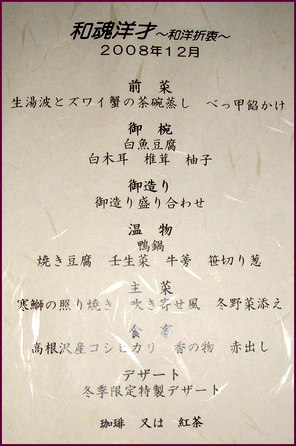 和魂洋才〜和洋折衷〜
2008年12月
前菜
生湯波とズワイ蟹の茶碗蒸し べっ甲餡かけ
御椀
白魚豆腐
白木耳 椎茸 柚子
御造り
御造り盛り合わせ
温物
鴨鍋
焼き豆腐 壬生菜 牛蒡 笹切り葱
主菜
寒鰤の照り焼き 吹き寄せ風 冬野菜添え
食事
高根沢産コシヒカリ 香の物 赤出し
デザート
冬季限定特製デザート
珈琲 又は 紅茶